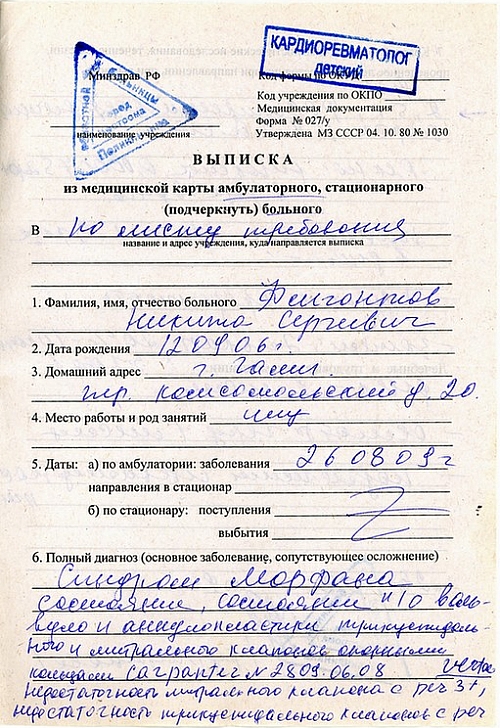 КАРДИОРЕВМАТОЛОГ
детский
Минздрав РФ
Код формы по ОКУД
Код учреждения по ОКПО
Медицинская документация
Форма № 027/у
Утверждена МЗ СССР 04. 10. 80 № 1030
областной больницы
город Кострома
Поликлиника
наименование учреждения
ВЫПИСКА
из медицинской карты амбулаторного, стационарного
(подчеркнуть) больного
В по месту требования
название и адрес учреждения, куда направляется выписка
1. Фамилия, имя, отчество больного
Никита Сергеевич
2. Дата рождения 12 09 06 г.
3. Домашний адрес г. Галич
Комсомольский д. 20.
4. Место работы и род занятий
5. Даты: а) по амбулатории: заболевания 26 08 09 г
направления в стационар
б) по стационару: поступления
выбытия
6. Полный диагноз (основное заболевание, сопутствующее осложнение)
Синдром Морфана
состояние, состояние п/о
и аннулопластики трикуспидаль-
ного и митрального клапанов опорными
кольцами Carpanter N 28 09.06.08
недостаточность митрального клапана с рег 3+,
недостаточность трикуспидального клапана с рег